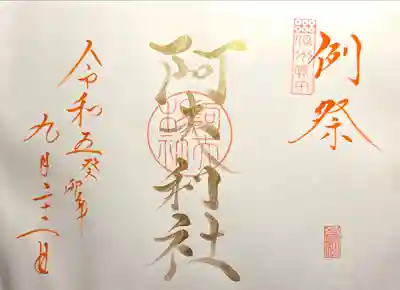 例祭
阿夫利社
令和五癸卯年
九月二十二日